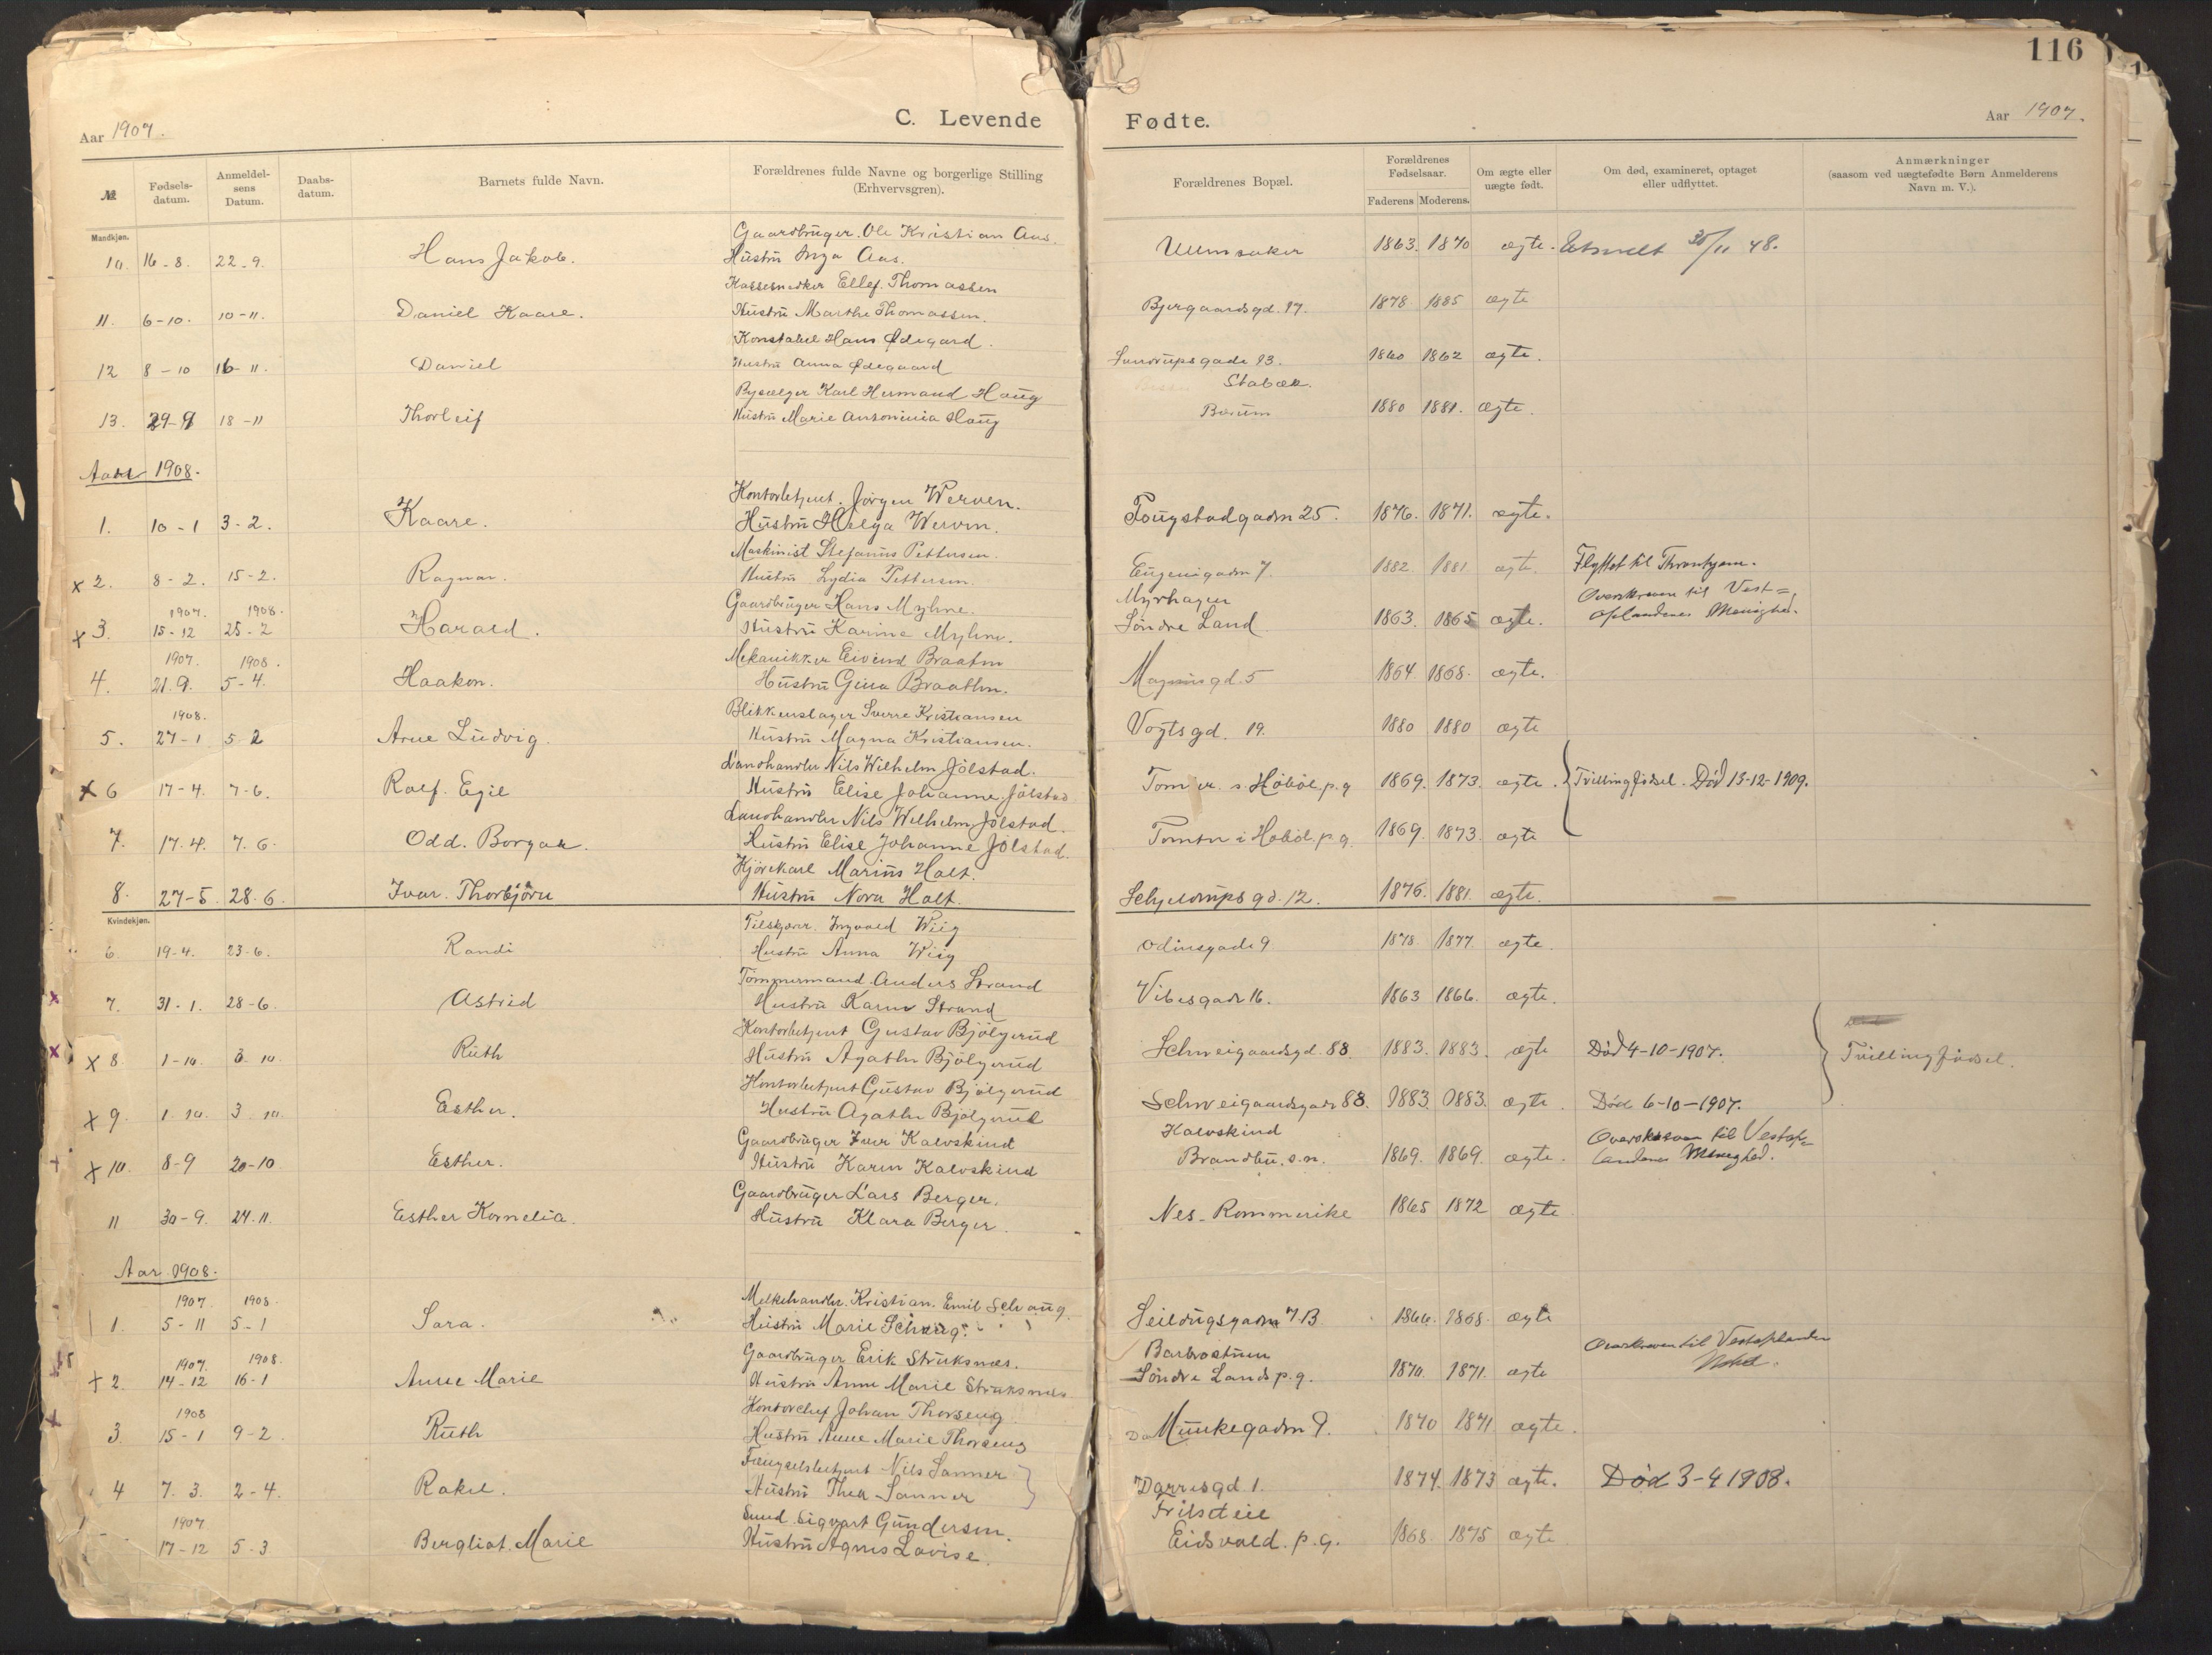 116
Aar 1907.
C. Levende
Fødte.
Aar 1907.
№
Fødsels-
datum.
Anmeldel-
sens
Datum.
Daabs-
datum.
Barnets fulde Navn.
Forældrenes fulde Navne og borgerlige Stilling
(Erhvervsgren).
Forældrenes Bopæl.
Forældrenes
Fødselsaar.
Faderens Moderens.
Om ægte eller
uægte født.
Om død, examineret, optaget
eller udflyttet.
Anmærkninger
(saasom ved uægtefødte Børn Anmelderens
Navn m. V.).
Mandkjøn.
Gaardbruger. Ole Kristian Aas.
10. 16-8. 22-9. Hans Jakob. Hustru Inga Aas. Ullensaker 1863. 1870 ægte. Utmeldt 30/11 48.
Kassesnedker Ellef. Thomassen
11. 6-10. 10-11. Daniel Kaare. Hustru Marthe Thomassen. Bjergaardsgd. 17. 1878 1885 ægte
Konstabel Hans Ødegaard.
12 8-10 16-11. Daniel Hustru Anna Ødegaard Sandrupsgade 13. 1860 1862 ægte.
Bysælger Karl Hermand Haug Stabæk.
13. 29-9 18-11 Thorleif Hustru Marie Antoninia Haug Bærum 1880 1881. ægte.
Aar 1908.
Kontorbetjent. Jørgen Werven.
1. 10-1 3-2. Kaare. Hustru Helga Werven. Fougstadgaden 25. 1876. 1871. ægte.
Maskinist Stefanus Pettersen.
x 2. 8-2. 15-2. Ragnar. Hustru Lydia Pettersen. Eugenigaden 7. 1882 1881 ægte. Flyttet til Throndhjem.
1907. 1908. Gaardbruger Hans Myhre. Myrhagen Overskreven til Vest=
x 3. 15-12 25-2 Harald. Hustru Karine Myhre. Søndre Land 1863. 1865 ægte. Oplandenes Menighed.
1907. 1908. Mekanikker Eivind Braathen
4. 21.9. 5-4. Haakon. Hustru Gina Braathen. Magnusgd. 5 1864 1868. ægte.
1908. Blikkenslager Sverre Kristiansen
5. 27-1 5-2 Arne Ludvig. Hustru Magna Kristiansen. Vogtsgd. 19. 1880 1880 ægte
Landhandler Nils Wilhelm Jölstad.
x 6 17-4. 7-6. Rolf. Egil Hustru Elise Johanne Jölstad Tomter. i Höböl p.g 1869. 1873. ægte. Tvillingfødsel. Död 13-12-1909.
Landhandler Nils Wilhelm Jölstad.
7. 17.4. 7.6. Odd. Borgar. Hustru Elise Johanne Jölstad. Tomter i Höböl. p.g. 1869. 1873. ægte
Kjørekarl Marius Holt.
8. 27-5. 28.6. Ivar. Thorbjörn Hustru Nora Holt. Schjelerupsgd. 12. 1876. 1881. ægte.
Kvindekjøn.
Filskjærer Ingvald Wiig
6 19-4. 23-6. Randi Hustru Anna Wiig Odinsgade 9 1878 1877. ægte.
Tömmermand. Anders Strand
x 7. 31-1. 28-6. Astrid Hustru Karen Strand Vibesgade 16. 1863 1866. ægte.
Kontorbetjent Gustav Bjölgerud
x x 8. 1-10. 3-10. Ruth Hustru Agathe Bjölgerud Schweigaardsgd. 88. 1883. 1883. ægte Död 4-10-1907. Tvillingfödsel.
Kontorbetjent Gustav Bjölgerud
x 9. 1-10. 3-10. Esther. Hustru Agathe Bjölgerud Schweigaardsgade 88. 1883. 1883. ægte. Död 6-10-1907.
Gaardbruger Iver Kalvskind Kalvskind Overskreven til Vestop=
x x 10. 8-9 20-10 Esther. Hustru Karen Kalvskind Brandbu. s.n. 1869. 1869. ægte. landenes Menighed.
Gaardbruger Lars Berger.
11 30-9. 24.11. Esther Kornelia. Hustru Klara Berger. Nes-Rommerike 1865 1872 ægte
Aar 1908.
1907. 1908 Melkehandler. Kristian. Emil Schaug.
1. 5-11 5-1 Sara. Hustru Marie Schaug. Seildugsgaden 7.B. 1866. 1868. ægte
1907. 1908. Gaardbruger Erik Struksnæs. Barbostuen Overskreven til Vestoplandene
x 2. 14-12 16-1 Anne Marie Hustru Anne Marie Struksnæs Søndre Lands p.g. 1870. 1871. ægte
1908 Kontorchef Johan Thorseng
x 3. 15-1 9-2. Ruth Hustru Anne Marie Thorseng Munkegaden 9. 1870 1871 ægte.
Fængselsbetjent Nils Sanner
4 7.3. 2-4. Rakel. Hustru Thea Sanner Darresgd 1. 1874. 1873 ægte. Död 3-4 1908.
1907 Smed. Sigvart Gundersen. Trilseteie
17-12 5-3 Bergliot. Marie Hustru Agnes Lovise. Eidsvold. p.g. 1868. 1875 ægte